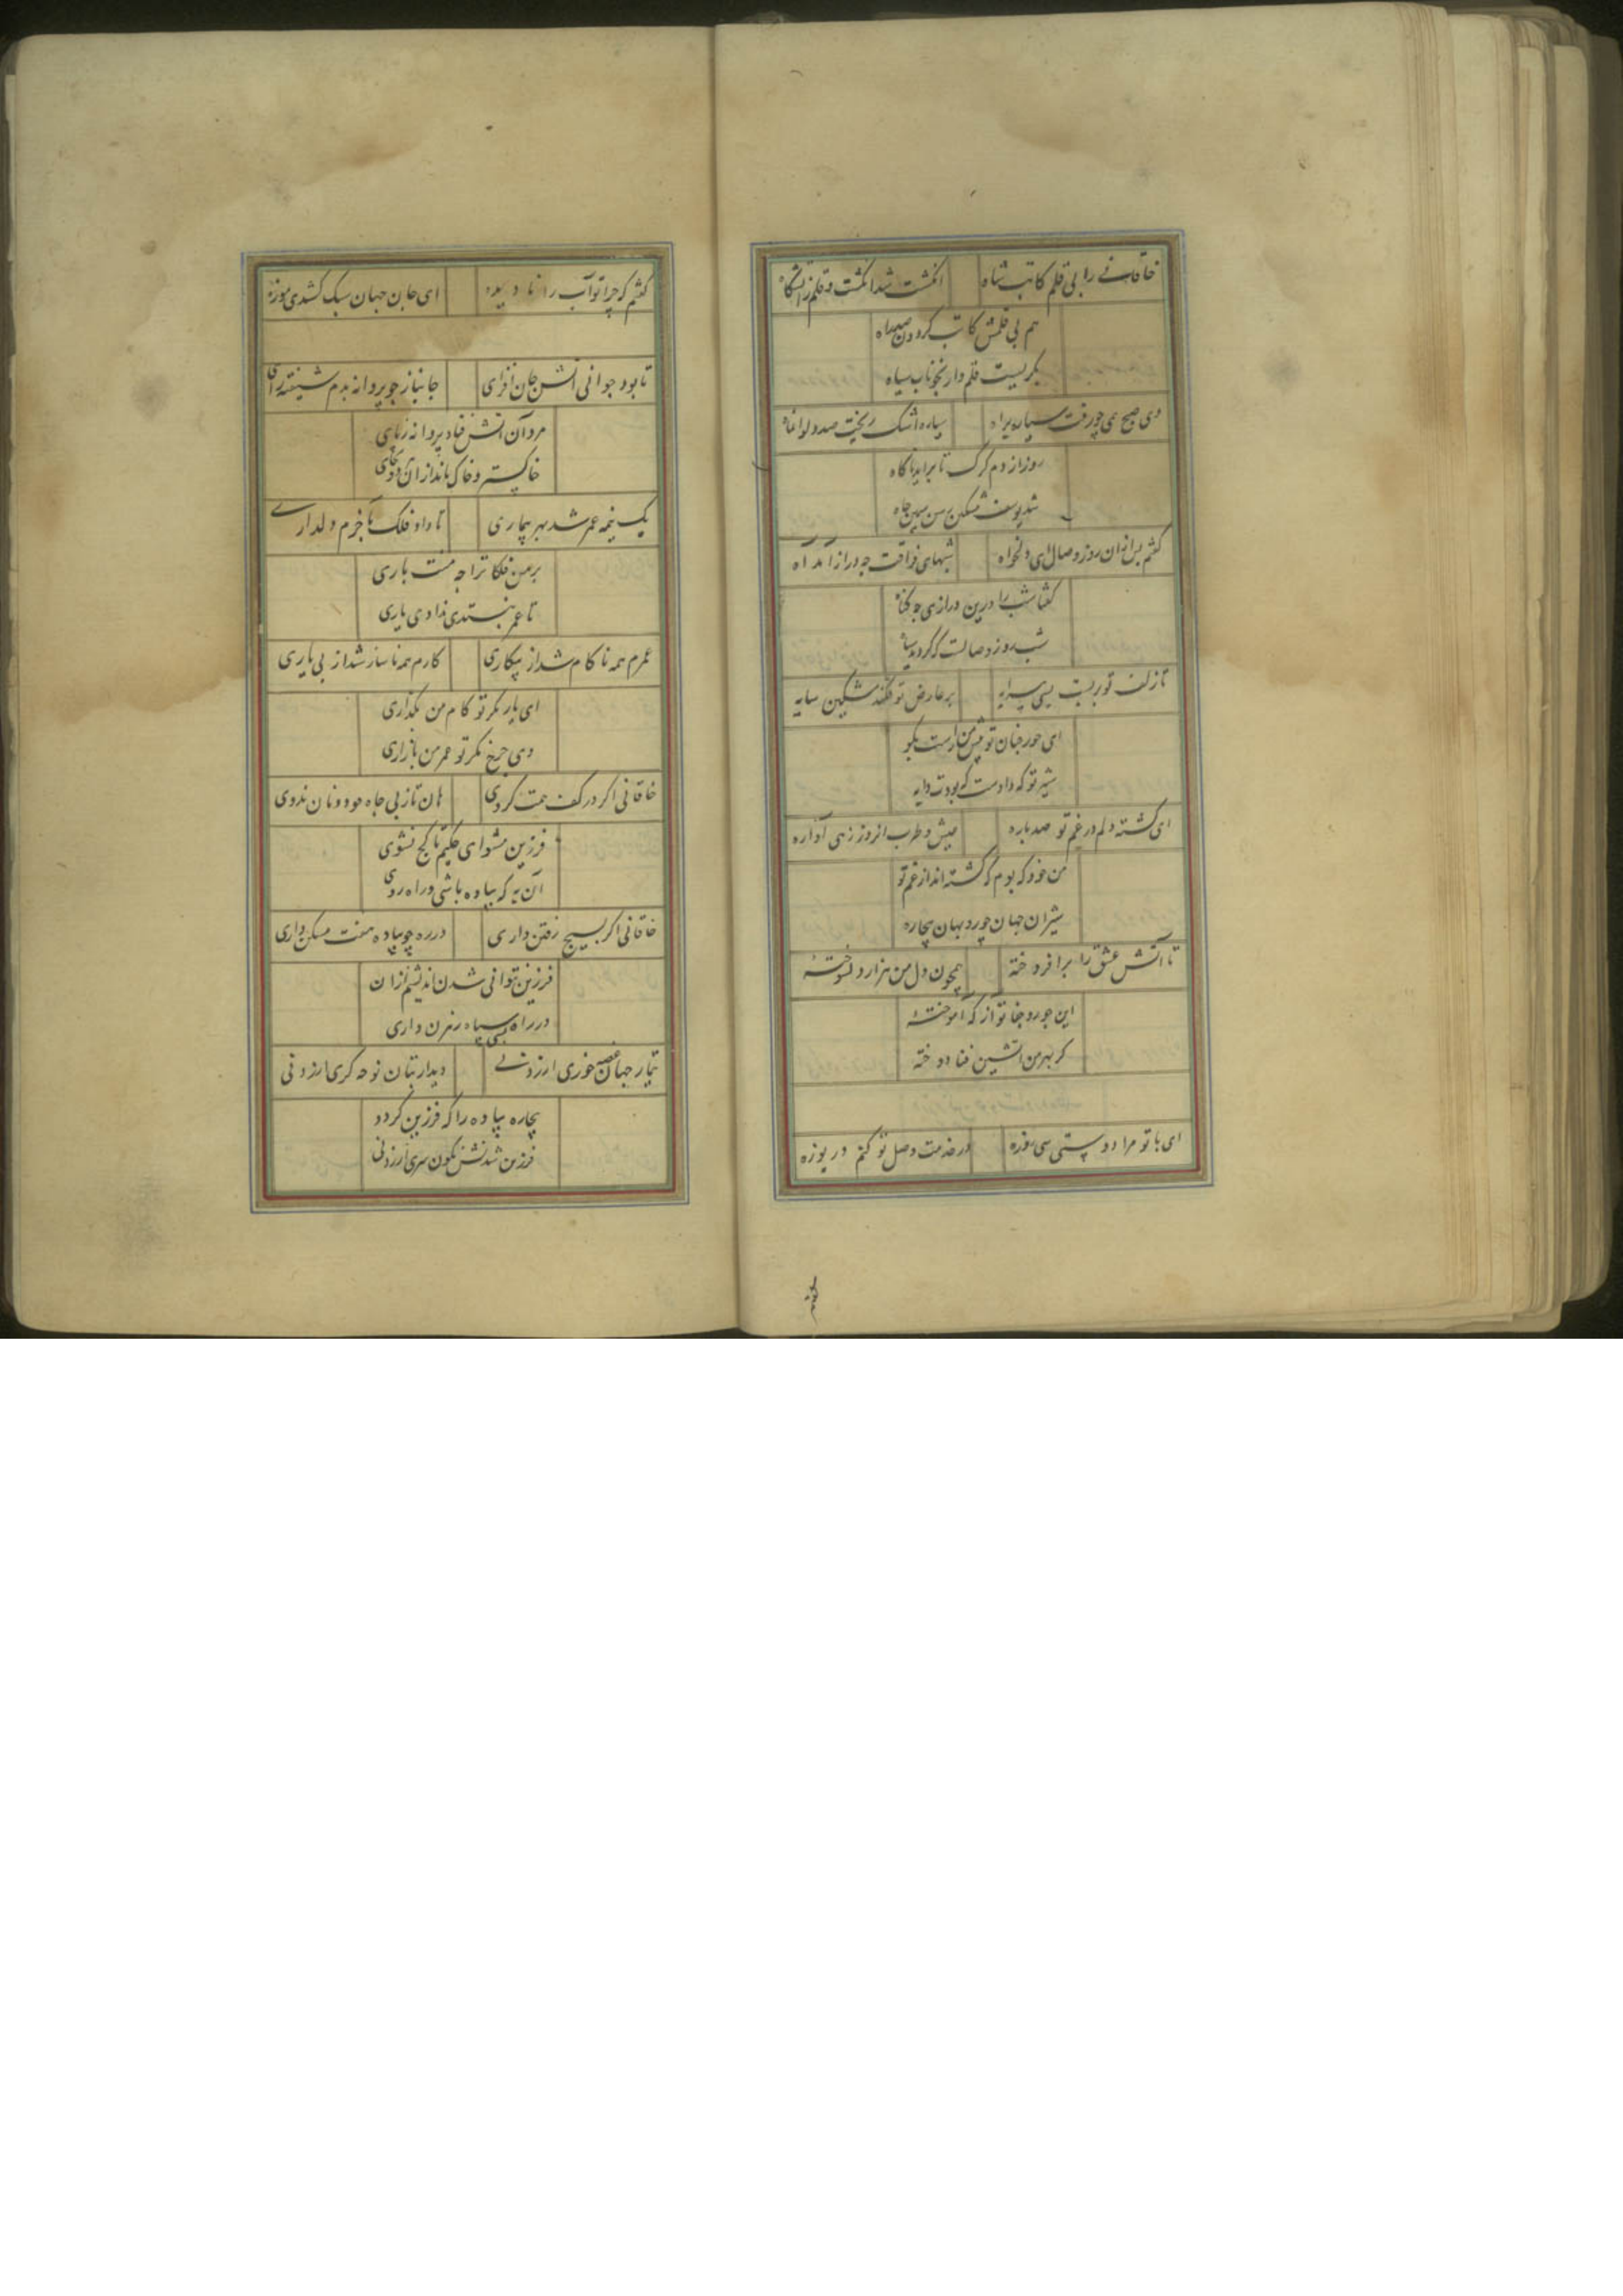 خاقانی را بی قلم کاتب شاه انگشت شد انگشت و قلم ز آتشگاه
هم بی قلمش کاتب گردون صد راه
بگریست قلم وار بخوناب سیاه
دی صبح می چو رفت سیاره براه سیاره اشک ریخت صد دلو آنماه
روز از دم گرگ تا برآید ناگاه
شد یوسف مشکین رسن سیمین چاه
گفتم پس از آن روز وصال ای دلخواه شبهای فراقت چه دراز آمد آه
گفتا شب را درین درازی چه گناه
شب روز وصالست که گردید سیاه
تا زلف تو بربست پیرایه بر عارض تو فکند مشکین سایه
ای حور جنان تو پیش من راست بگو
شیر تو که دادست که بودت دایه
ای گشته دلم در غم تو صد پاره عیش و طرب از روز رهی آواره
من خود که بوم که کشته اند از غم تو
شیران جهان چو روبهان بیچاره
تا آتش عشق را برافروخته همچون دل من هزار دل سوخته
این جور و جفا تو از که آموخته
کز بهر من آتشین قبا دوخته
ای با تو مرا دوستی سی روزه در خدمت وصل تو کنم دریوزه
گفتم که چرا تو آب را نادیده ای جان جهان سبک کشیدی موزه
تا بود جوانی آتش جان افزای جانباز چو پروانه بدم شیفته رای
مرد آن آتش فتاد پروانه ز پای
خاکستر و خاک ماند از آن هر دو بجای
یک نیمه عمر شد بهر بیماری تا داد فلک بآخرم دلداری
بر من فلکا ترا چه منت باری
تا عمر بنستدی ندادی یاری
عمرم همه ناکام شد از بیکاری کارم همه ناساز شد از بی یاری
ای یار مگر تو کام من بگذاری
وی چرخ مگر تو عمر من باز آری
خاقانی اگر در کف همت گروی هان تا ز پی جاه چو دونان ندوی
فرزین مشو ای حکیم تا کج نشوی
آن به که پیاده باشی و راه روی
خاقانی اگر بسیج رفتن داری در ره چو پیاده هفت مسکن داری
فرزین نتوانی شدن اندیشم از آن
در راه بسی سپاه رهزن داری
تیمار جهان غصه خوری ارزد نی دیدار بتان نوحه گری ارزد نی
بیچاره پیاده را که فرزین گردد
فرزین شدنش نگون سری ارزد نی